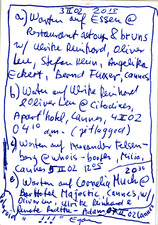 3 II 02 2015
a) Warten auf Essen @
Restaurant astoux & bruns
w/ Ulrike Reinhard, Oliver
Leu, Stefan Keun, Angelika
Eckert, Bernd Fusser, Cannes
b) Warten auf Ulrike Reinhard
& Oliver Leu @ Citadines,
Apart'hotel, Cannes, 4 II 02
04 10 a.m. (jetlagged)
c) Warten auf Alexander Felsen-
berg @ whois-börfer,
Cannes 2015
d) Warten auf Cornelia Much @
Barhotel Majestic, Cannes, w/
Oliver Leu, Ulrike Reinhard &
Adam Cannes